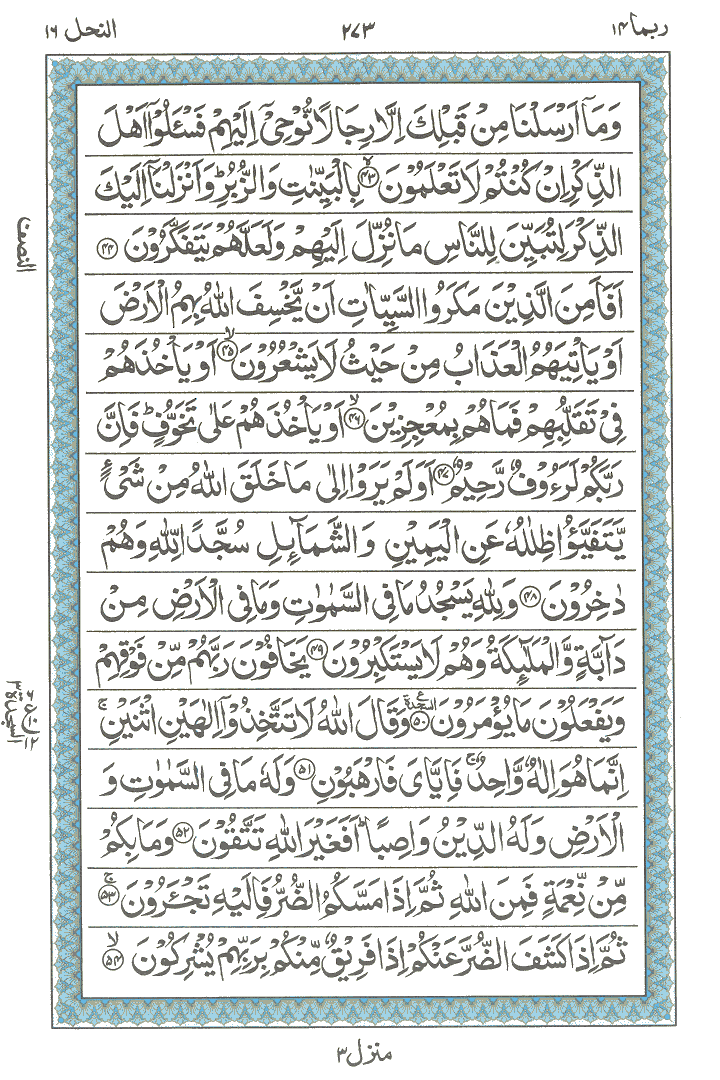 ربما ١٤
٢٧٣
النحل ١٦
وَمَاۤ اَرْسَلْنَا مِنْ قَبْلِكَ اِلَّا رِجَالًا نُّوْحِیْۤ اِلَیْهِمْ فَسْـَٔلُوْۤا اَهْلَ
الذِّكْرِ اِنْ كُنْتُمْ لَا تَعْلَمُوْنَۙ ﴿٤٣﴾ بِالْبَیِّنٰتِ وَالزُّبُرِؕ وَاَنْزَلْنَاۤ اِلَیْكَ
الذِّكْرَ لِتُبَیِّنَ لِلنَّاسِ مَا نُزِّلَ اِلَیْهِمْ وَلَعَلَّهُمْ یَتَفَكَّرُوْنَ ﴿٤٤﴾
النصف
اَفَاَمِنَ الَّذِیْنَ مَكَرُوا السَّیِّاٰتِ اَنْ یَّخْسِفَ اللّٰهُ بِهِمُ الْاَرْضَ
اَوْ یَاْتِیَهُمُ الْعَذَابُ مِنْ حَیْثُ لَا یَشْعُرُوْنَۙ ﴿٤٥﴾ اَوْ یَاْخُذَهُمْ
فِیْ تَقَلُّبِهِمْ فَمَا هُمْ بِمُعْجِزِیْنَۙ ﴿٤٦﴾ اَوْ یَاْخُذَهُمْ عَلٰی تَخَوُّفٍؕ فَاِنَّ
رَبَّكُمْ لَرَءُوْفٌ رَّحِیْمٌ ﴿٤٧﴾ اَوَلَمْ یَرَوْا اِلٰی مَا خَلَقَ اللّٰهُ مِنْ شَیْءٍ
یَّتَفَیَّؤُا ظِلٰلُهٗ عَنِ الْیَمِیْنِ وَالشَّمَآىِٕلِ سُجَّدًا لِّلّٰهِ وَهُمْ
دٰخِرُوْنَ ﴿٤٨﴾ وَلِلّٰهِ یَسْجُدُ مَا فِی السَّمٰوٰتِ وَمَا فِی الْاَرْضِ مِنْ
دَآبَّةٍ وَّالْمَلٰٓىِٕكَةُ وَهُمْ لَا یَسْتَكْبِرُوْنَ ﴿٤٩﴾ یَخَافُوْنَ رَبَّهُمْ مِّنْ فَوْقِهِمْ
وَیَفْعَلُوْنَ مَا یُؤْمَرُوْنَ ﴿٥٠﴾ السجدة ع وَقَالَ اللّٰهُ لَا تَتَّخِذُوْۤا اِلٰهَیْنِ اثْنَیْنِۚ
السجدة ٣
اِنَّمَا هُوَ اِلٰهٌ وَّاحِدٌۚ فَاِیَّایَ فَارْهَبُوْنِ ﴿٥١﴾ وَلَهٗ مَا فِی السَّمٰوٰتِ وَ
الْاَرْضِ وَلَهُ الدِّیْنُ وَاصِبًاؕ اَفَغَیْرَ اللّٰهِ تَتَّقُوْنَ ﴿٥٢﴾ وَمَا بِكُمْ
مِّنْ نِّعْمَةٍ فَمِنَ اللّٰهِ ثُمَّ اِذَا مَسَّكُمُ الضُّرُّ فَاِلَیْهِ تَجْـَٔرُوْنَۚ ﴿٥٣﴾
ثُمَّ اِذَا كَشَفَ الضُّرَّ عَنْكُمْ اِذَا فَرِیْقٌ مِّنْكُمْ بِرَبِّهِمْ یُشْرِكُوْنَۙ ﴿٥٤﴾
منزل ٣